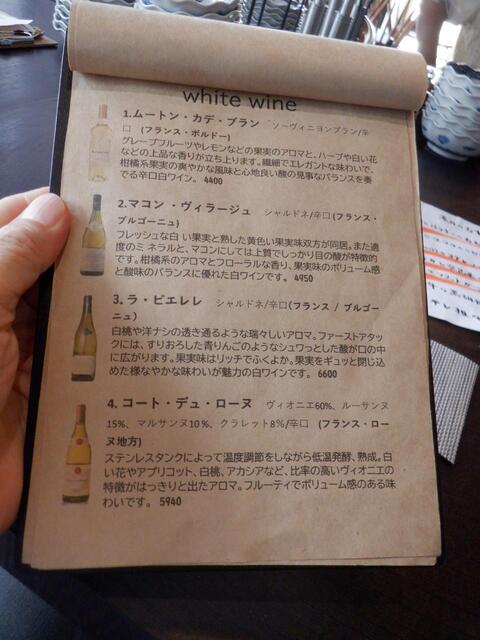 white wine
1.ムートン・カデ・ブラン ソーヴィニヨンブラン/辛
口 (フランス・ボルドー)
グレープフルーツやレモンなどの果実のアロマと、ハーブや白い花
などの上品な香りが立ち上ります。繊細でエレガントな味わいで、
柑橘系果実の爽やかな風味と心地良い酸の見事なバランスを奏
でる辛口白ワイン。 4400
2.マコン・ヴィラージュ シャルドネ/辛口(フランス・
ブルゴーニュ)
フレッシュな白 い果実と熟した黄色い果実味双方が同居。また適
度のミ ネラルと、マコンにしては上質でしっかり目の酸が特徴的
です。柑橘系のアロマとフローラルな香り、果実味のボリューム感
と酸味のバランスに優れた白ワインです。 4950
3. ラ・ピエレレ シャルドネ/辛口(フランス / ブルゴー
ニュ)
白桃や洋ナシの透き通るような瑞々しいアロマ。ファーストアタッ
クには、すりおろした青りんごのようなシュワっとした酸が口の中
に広がります。果実味はリッチでふくよか。果実をギュッと閉じ込
めた様なやかな味わいが魅力の白ワインです。 6600
4. コート・デュ・ローヌ ヴィオニエ60%、ルーサンヌ
15%、マルサンヌ10%、クラレット8%/辛口 (フランス・ロー
ヌ地方)
ステンレスタンクによって温度調節をしながら低温発酵、熟成。白
い花やアプリコット、白桃、アカシアなど、比率の高いヴィオニエの
特徴がはっきりと出たアロマ。フルーティでボリューム感のある味
わいです。 5940